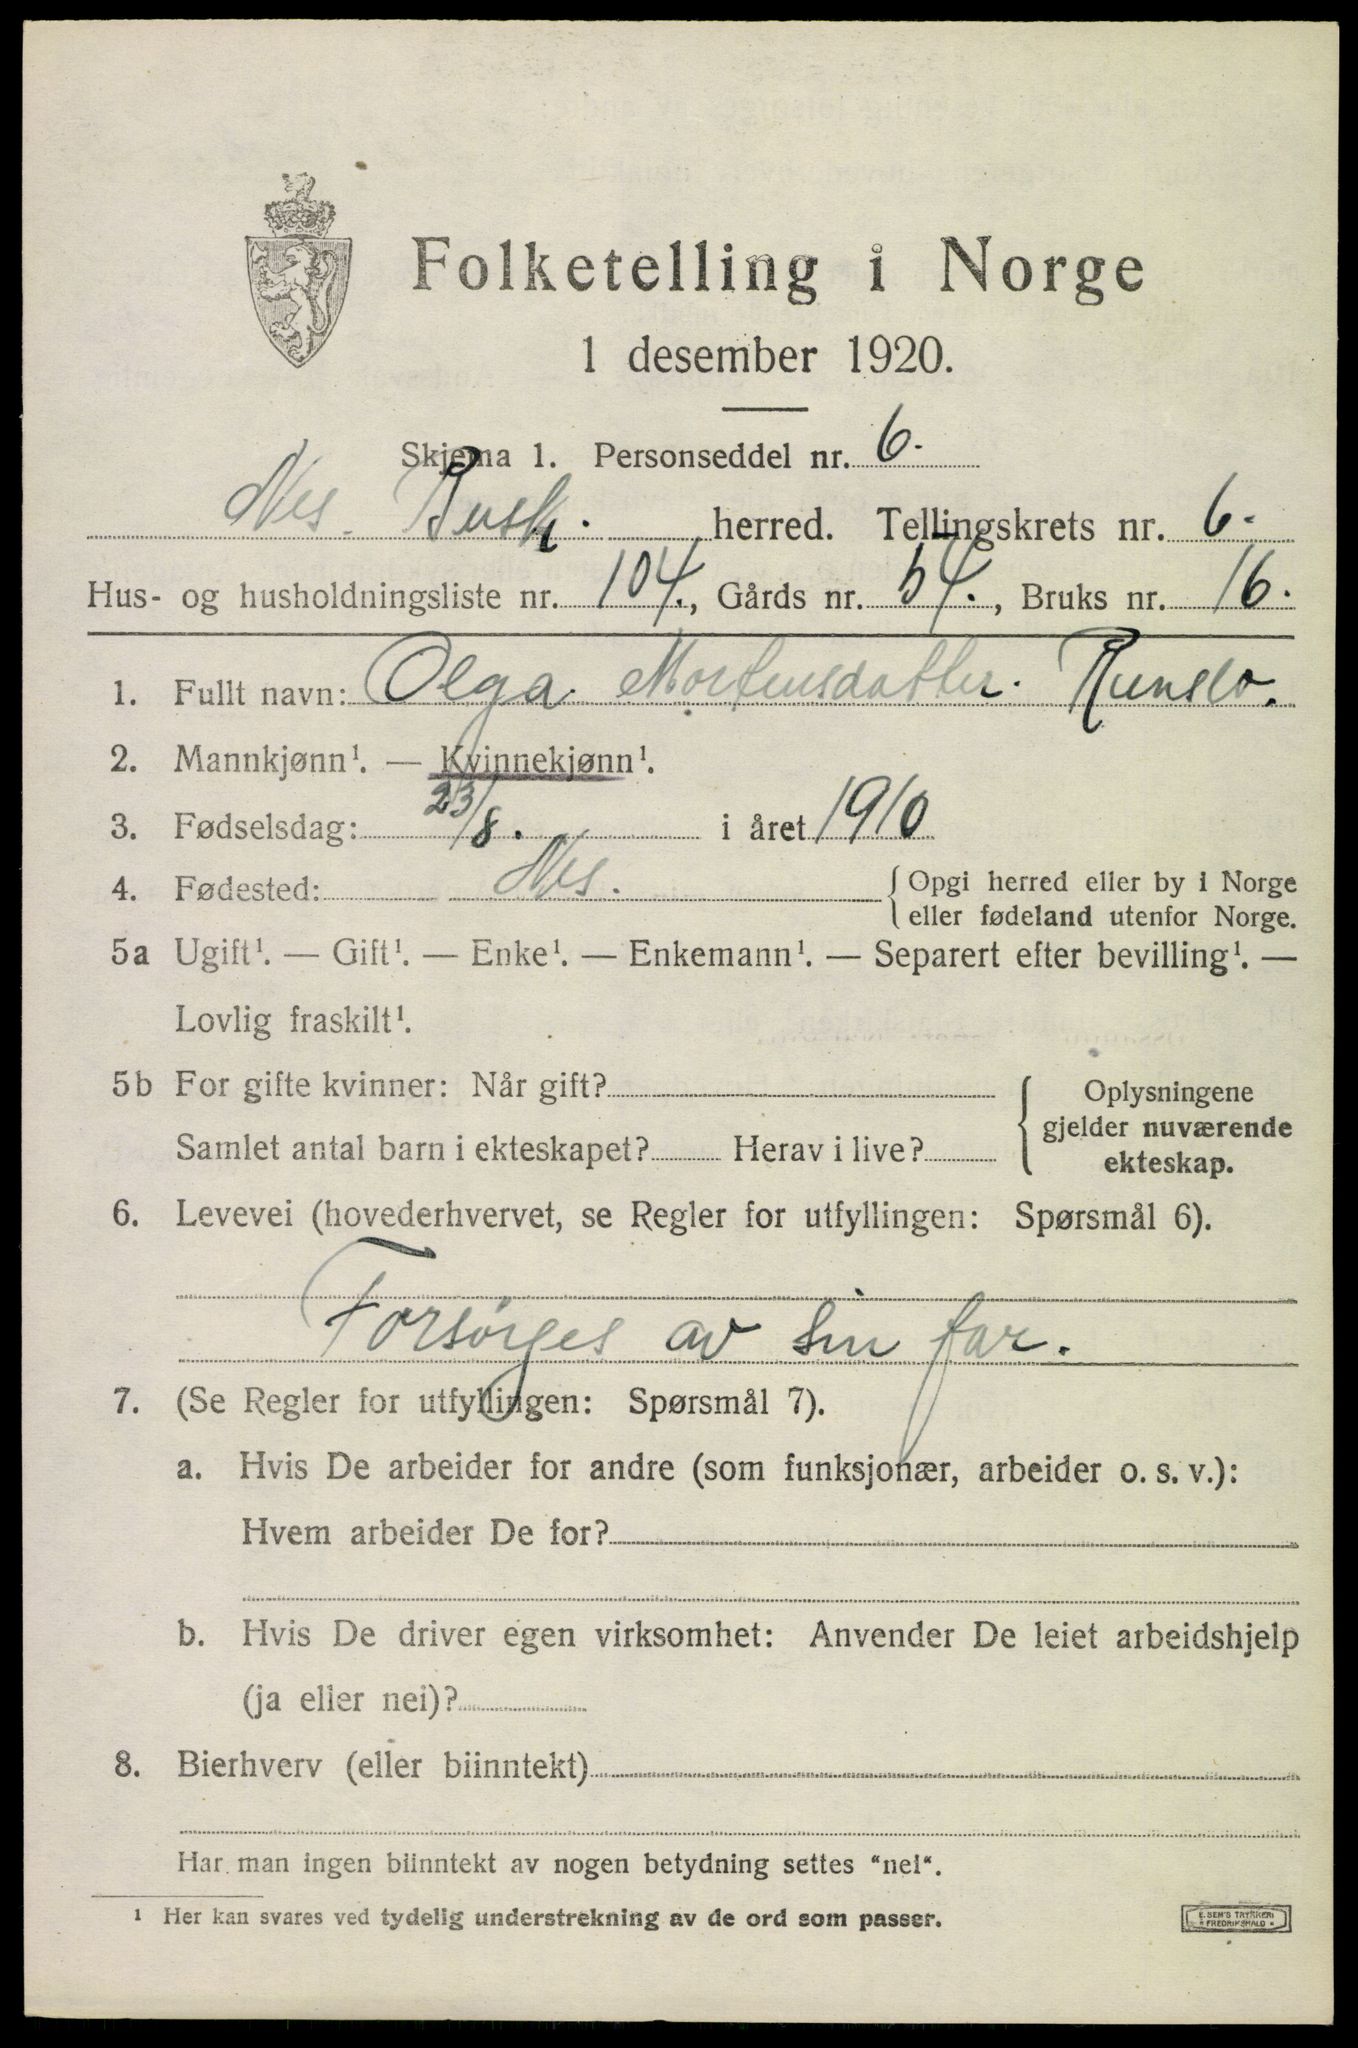 Folketelling i Norge
1 desember 1920.
Skjema 1. Personseddel nr. 6.
Nes. Busk. herred. Tellingskrets nr. 6.
Hus- og husholdningsliste nr. 104., Gårds nr. 54., Bruks nr. 16.
1. Fullt navn: Olga Mortensdatter.
2. Mannkjønn¹. — Kvinnekjønn¹.
3. Fødselsdag: 23/8. i året 1910
4. Fødested: Nes. {Opgi herred eller by i Norge
eller fødeland utenfor Norge.
5a Ugift¹. — Gift¹. — Enke¹. — Enkemann¹. — Separert efter bevilling¹. —
Lovlig fraskilt¹.
5b For gifte kvinner: Når gift?
Samlet antal barn i ekteskapet? Herav i live?
{ Oplysningene
gjelder nuværende
ekteskap.
6. Levevei (hovederhvervet, se Regler for utfyllingen: Spørsmål 6).
Forsørges av sin far.
7. (Se Regler for utfyllingen: Spørsmål 7).
a. Hvis De arbeider for andre (som funksjonær, arbeider o. s. v.):
Hvem arbeider De for?
b. Hvis De driver egen virksomhet: Anvender De leiet arbeidshjelp
(ja eller nei)?
8. Bierhverv (eller biinntekt)
Har man ingen biinntekt av nogen betydning settes "nei".
¹ Her kan svares ved tydelig understrekning av de ord som passer.
E. SEM'S TRYKKERI
FREDRIKSHALD